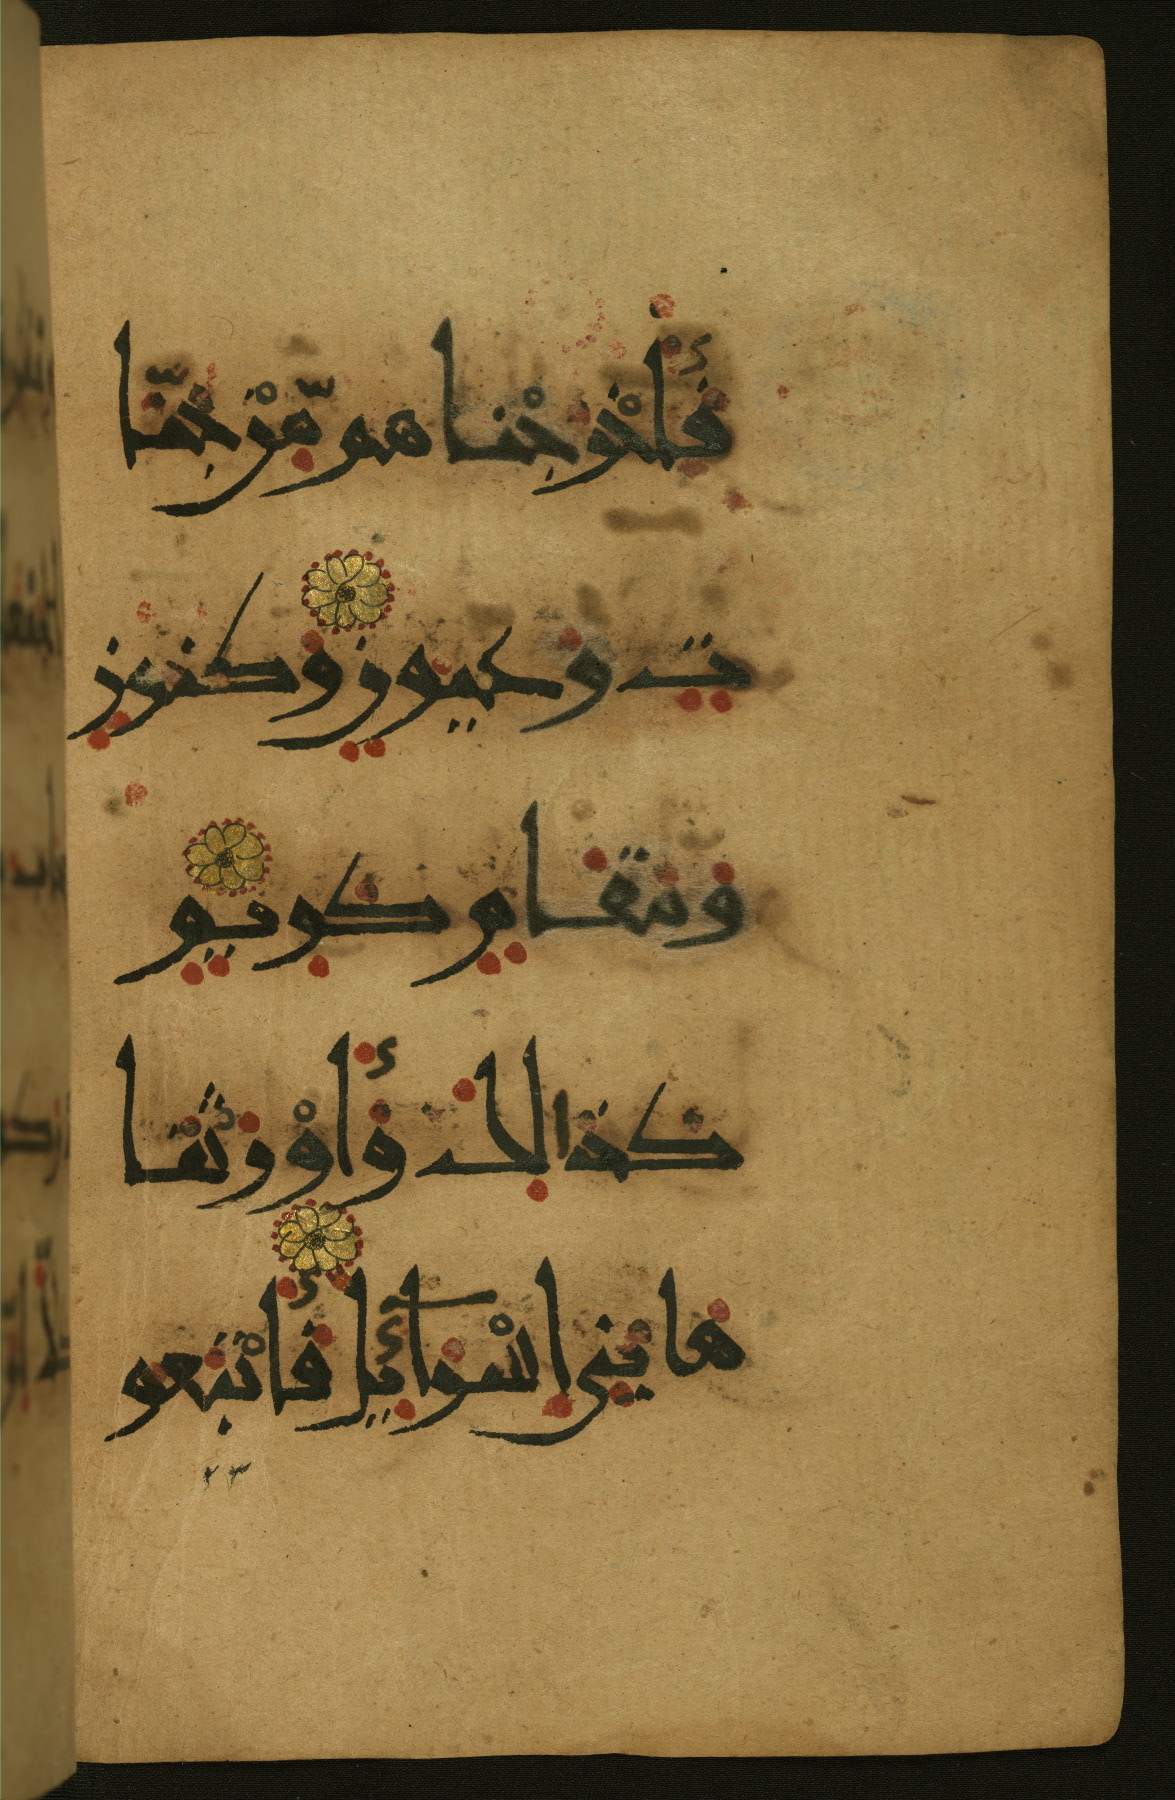 فأخرجناهم من جنا
ت وعيون وكنوز
ومقام كريم
كذلك وأورثنا
ها بني إسرائيل فأتبعو
٢٣